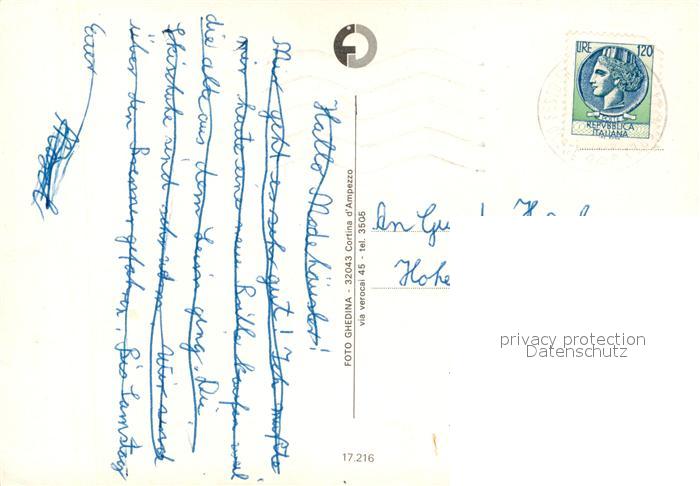 Hallo Modehäusler!
Mir geht es sehr gut! Ich mußte
mir heute eine neue Brille kaufen weil
die alte aus dem Leim ging. Die
Skischuhe sind
Wir sind
über den Brenner gefahren. Bis Samstag
Euer
FOTO GHEDINA - 32043 Cortina d'Ampezzo
via verocai 45 - tel. 3505
17.216
LIRE 120
POSTE
REPVBBLICA
ITALIANA
An
Hohe
privacy protection
Datenschutz